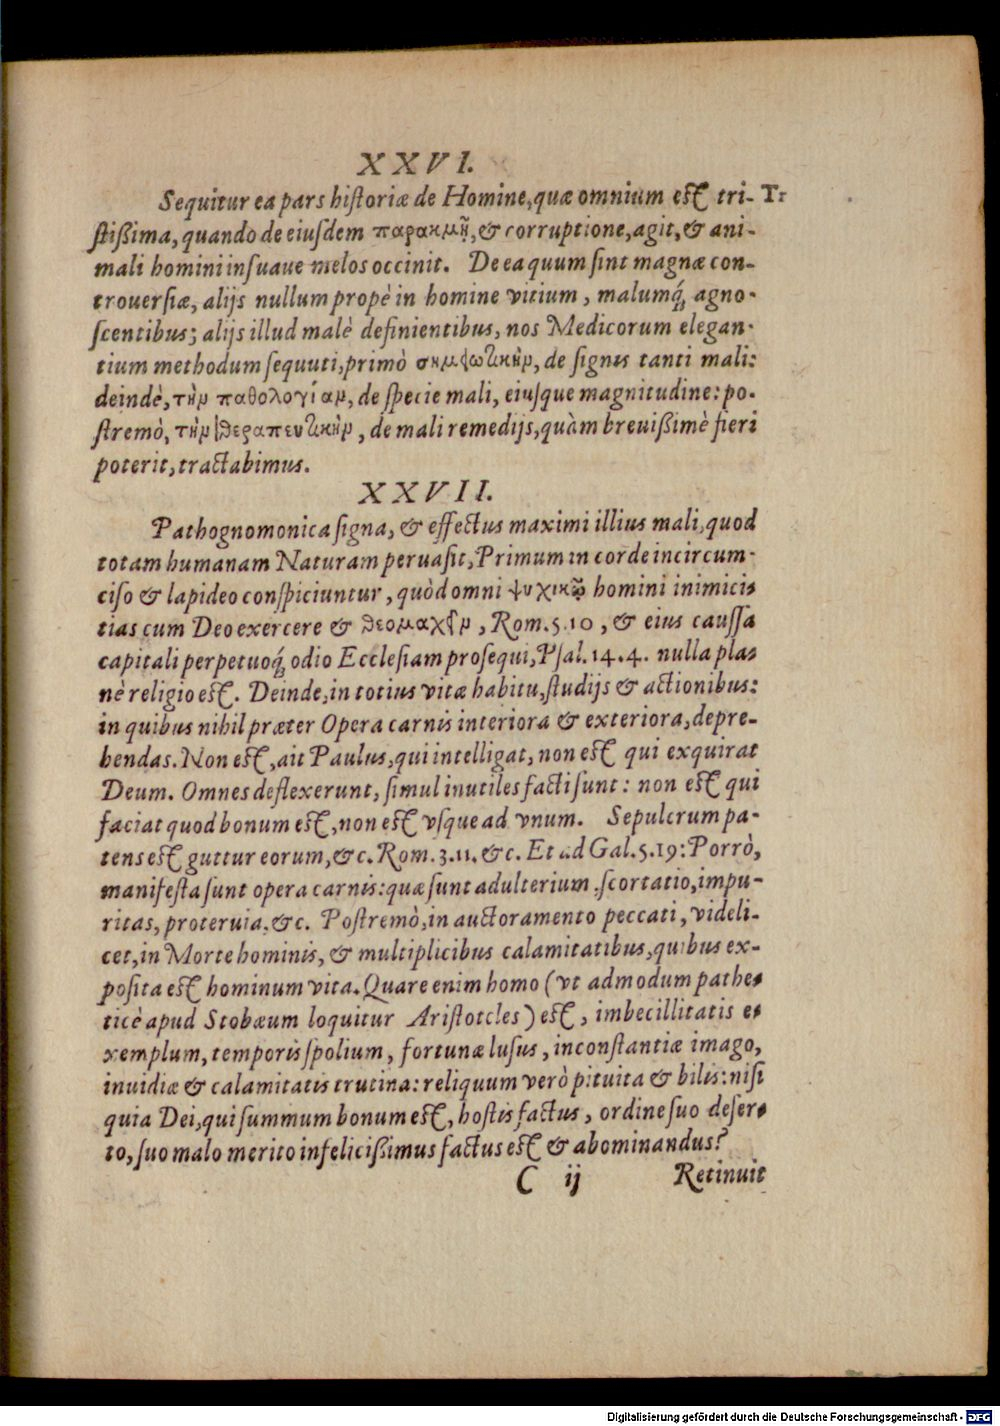 XXVI.
Sequitur ea pars historiæ de Homine, quæ omnium est tri- Tr
stißima, quando de eiusdem παρακμῇ, & corruptione, agit, & ani-
mali homini insuaue melos occinit. De ea quum sint magnæ con-
trouersiæ, alijs nullum propè in homine vitium, malumq́; agno-
scentibus; alijs illud malè definientibus, nos Medicorum elegan-
tium methodum sequuti, primò σημειωτικὴν, de signis tanti mali:
deindè, τὴν παθολογίαν, de specie mali, eiusque magnitudine: po-
stremò, τὴν θεραπευτικὴν, de mali remedijs, quàm breuißimè fieri
poterit, tractabimus.
XXVII.
Pathognomonica signa, & effectus maximi illius mali, quod
totam humanam Naturam peruasit, Primum in corde incircum-
ciso & lapideo conspiciuntur, quòd omni ψυχικῷ homini inimici-
tias cum Deo exercere & θεομαχεῖν, Rom. 5. 10, & eius caussa
capitali perpetuoq́; odio Ecclesiam prosequi, Psal. 14. 4. nulla pla-
nè religio est. Deinde, in totius vitæ habitu, studijs & actionibus:
in quibus nihil præter Opera carnis interiora & exteriora, depre-
hendas. Non est, ait Paulus, qui intelligat, non est qui exquirat
Deum. Omnes deflexerunt, simul inutiles facti sunt: non est qui
faciat quod bonum est, non est vsque ad vnum. Sepulcrum pa-
tens est guttur eorum, &c. Rom. 3. 11. &c. Et ad Gal. 5. 19: Porrò,
manifesta sunt opera carnis: quæ sunt adulterium, scortatio, impu-
ritas, proteruia, &c. Postremò, in auctoramento peccati, videli-
cet, in Morte hominis, & multiplicibus calamitatibus, quibus ex-
posita est hominum vita. Quare enim homo (vt admodum pathe-
ticè apud Stobæum loquitur Aristoteles) est, imbecillitatis e-
xemplum, temporis spolium, fortunæ lusus, inconstantiæ imago,
inuidiæ & calamitatis trutina: reliquum verò pituita & bilis: nisi
quia Dei, qui summum bonum est, hostis factus, ordine suo deser-
to, suo malo merito infelicißimus factus est & abominandus?
C ij Retinuit
Digitalisierung gefördert durch die Deutsche Forschungsgemeinschaft - DFG